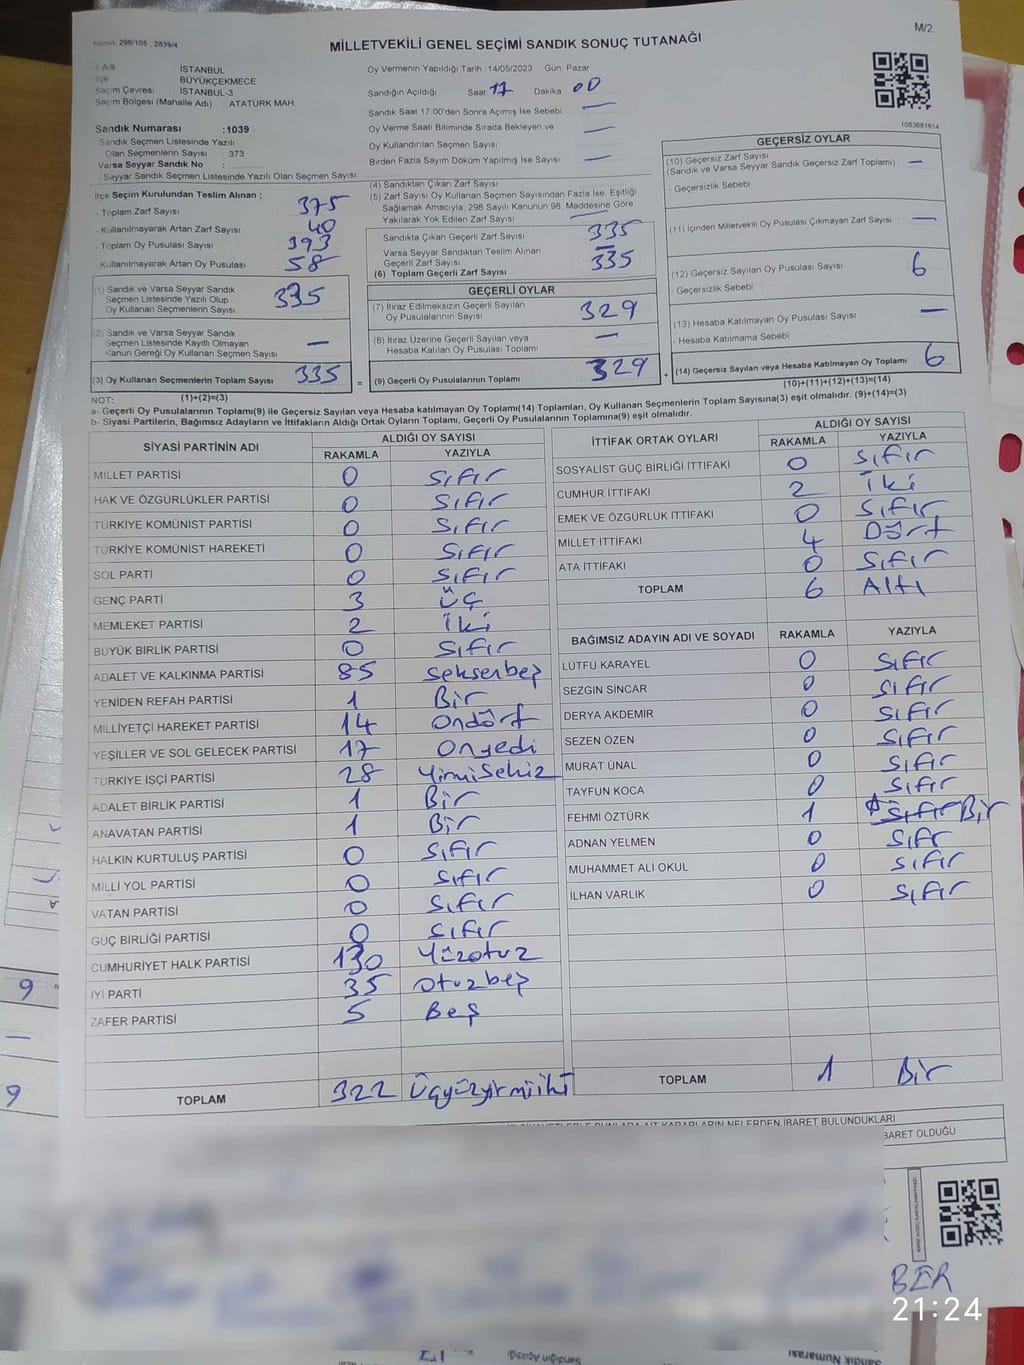 Kanun: 298/105, 2839/4
M/2
MİLLETVEKİLİ GENEL SEÇİMİ SANDIK SONUÇ TUTANAĞI
İl Adı : İSTANBUL
İlçe : BÜYÜKÇEKMECE
Seçim Çevresi : İSTANBUL-3
Seçim Bölgesi (Mahalle Adı) : ATATÜRK MAH.
Sandık Numarası :1039
Sandık Seçmen Listesinde Yazılı
Olan Seçmenlerin Sayısı : 373
Varsa Seyyar Sandık No :
- Seyyar Sandık Seçmen Listesinde Yazılı Olan Seçmen Sayısı:
Oy Vermenin Yapıldığı Tarih :14/05/2023 Gün: Pazar
Sandığın Açıldığı Saat 17 Dakika 00
Sandık Saat 17:00'den Sonra Açımış İse Sebebi —
Oy Verme Saati Bitiminde Sırada Bekleyen ve —
Oy Kullandırılan Seçmen Sayısı
Birden Fazla Sayım Döküm Yapılmış İse Sayısı —
1053681614
İlçe Seçim Kurulundan Teslim Alınan ;
- Toplam Zarf Sayısı 375
- Kullanılmayarak Artan Zarf Sayısı 40
- Toplam Oy Pusulası Sayısı 393
- Kullanılmayarak Artan Oy Pusulası 58
(1) Sandık ve Varsa Seyyar Sandık
Seçmen Listesinde Yazılı Olup
Oy Kullanan Seçmenlerin Sayısı 335
(2) Sandık ve Varsa Seyyar Sandık
Seçmen Listesinde Kayıtlı Olmayan
Kanun Gereği Oy Kullanan Seçmen Sayısı —
(3) Oy Kullanan Seçmenlerin Toplam Sayısı 335
(1)+(2)=(3)
(4) Sandıktan Çıkan Zarf Sayısı
(5) Zarf Sayısı Oy Kullanan Seçmen Sayısından Fazla İse, Eşitliği
Sağlamak Amacıyla, 298 Sayılı Kanunun 98. Maddesine Göre
Yakılarak Yok Edilen Zarf Sayısı —
Sandıkta Çıkan Geçerli Zarf Sayısı 335
Varsa Seyyar Sandıktan Teslim Alınan
Geçerli Zarf Sayısı —
(6) Toplam Geçerli Zarf Sayısı 335
GEÇERLİ OYLAR
(7) İtiraz Edilmeksizin Geçerli Sayılan
Oy Pusulalarının Sayısı 329
(8) İtiraz Üzerine Geçerli Sayılan veya
Hesaba Katılan Oy Pusulası Toplamı —
= (9) Geçerli Oy Pusulalarının Toplamı 329
GEÇERSİZ OYLAR
(10) Geçersiz Zarf Sayısı —
(Sandık ve Varsa Seyyar Sandık Geçersiz Zarf Toplamı)
- Geçersizlik Sebebi
(11) İçinden Milletvekili Oy Pusulası Çıkmayan Zarf Sayısı —
(12) Geçersiz Sayılan Oy Pusulası Sayısı 6
- Geçersizlik Sebebi
(13) Hesaba Katılmayan Oy Pusulası Sayısı —
- Hesaba Katılmama Sebebi
+ (14) Geçersiz Sayılan veya Hesaba Katılmayan Oy Toplamı 6
(10)+(11)+(12)+(13)=(14)
NOT:
a- Geçerli Oy Pusulalarının Toplamı(9) ile Geçersiz Sayılan veya Hesaba katılmayan Oy Toplamı(14) Toplamları, Oy Kullanan Seçmenlerin Toplam Sayısına(3) eşit olmalıdır. (9)+(14)=(3)
b- Siyasi Partilerin, Bağımsız Adayların ve İttifakların Aldığı Ortak Oyların Toplamı, Geçerli Oy Pusulalarının Toplamına(9) eşit olmalıdır.
SİYASİ PARTİNİN ADI ALDIĞI OY SAYISI
RAKAMLA YAZIYLA
MİLLET PARTİSİ 0 Sıfır
HAK VE ÖZGÜRLÜKLER PARTİSİ 0 Sıfır
TÜRKİYE KOMÜNİST PARTİSİ 0 Sıfır
TÜRKİYE KOMÜNİST HAREKETİ 0 Sıfır
SOL PARTİ 0 Sıfır
GENÇ PARTİ 3 Üç
MEMLEKET PARTİSİ 2 İki
BÜYÜK BİRLİK PARTİSİ 0 Sıfır
ADALET VE KALKINMA PARTİSİ 85 Seksenbeş
YENİDEN REFAH PARTİSİ 1 Bir
MİLLİYETÇİ HAREKET PARTİSİ 14 Ondört
YEŞİLLER VE SOL GELECEK PARTİSİ 17 Onyedi
TÜRKİYE İŞÇİ PARTİSİ 28 Yirmisekiz
ADALET BİRLİK PARTİSİ 1 Bir
ANAVATAN PARTİSİ 1 Bir
HALKIN KURTULUŞ PARTİSİ 0 Sıfır
MİLLİ YOL PARTİSİ 0 Sıfır
VATAN PARTİSİ 0 Sıfır
GÜÇ BİRLİĞİ PARTİSİ 0 Sıfır
CUMHURİYET HALK PARTİSİ 130 Yüzotuz
İYİ PARTİ 35 Otuzbeş
ZAFER PARTİSİ 5 Beş
TOPLAM 322 Üçyüzyirmiiki
İTTİFAK ORTAK OYLARI ALDIĞI OY SAYISI
RAKAMLA YAZIYLA
SOSYALİST GÜÇ BİRLİĞİ İTTİFAKI 0 Sıfır
CUMHUR İTTİFAKI 2 İki
EMEK VE ÖZGÜRLÜK İTTİFAKI 0 Sıfır
MİLLET İTTİFAKI 4 Dört
ATA İTTİFAKI 0 Sıfır
TOPLAM 6 Altı
BAĞIMSIZ ADAYIN ADI VE SOYADI RAKAMLA YAZIYLA
LÜTFÜ KARAYEL 0 Sıfır
SEZGİN SİNCAR 0 Sıfır
DERYA AKDEMİR 0 Sıfır
SEZEN ÖZEN 0 Sıfır
MURAT ÜNAL 0 Sıfır
TAYFUN KOCA 0 Sıfır
FEHMİ ÖZTÜRK 1 Sıfır Bir
ADNAN YELMEN 0 Sıfr
MUHAMMET ALİ OKUL 0 Sıfır
İLHAN VARLIK 0 Sıfır
TOPLAM 1 Bir
NELERDEN İBARET BULUNDUKLARI
BARET OLDUĞU
BER
21:24
9
9
Sandığın Açıldığı
17
Sandık Numarası